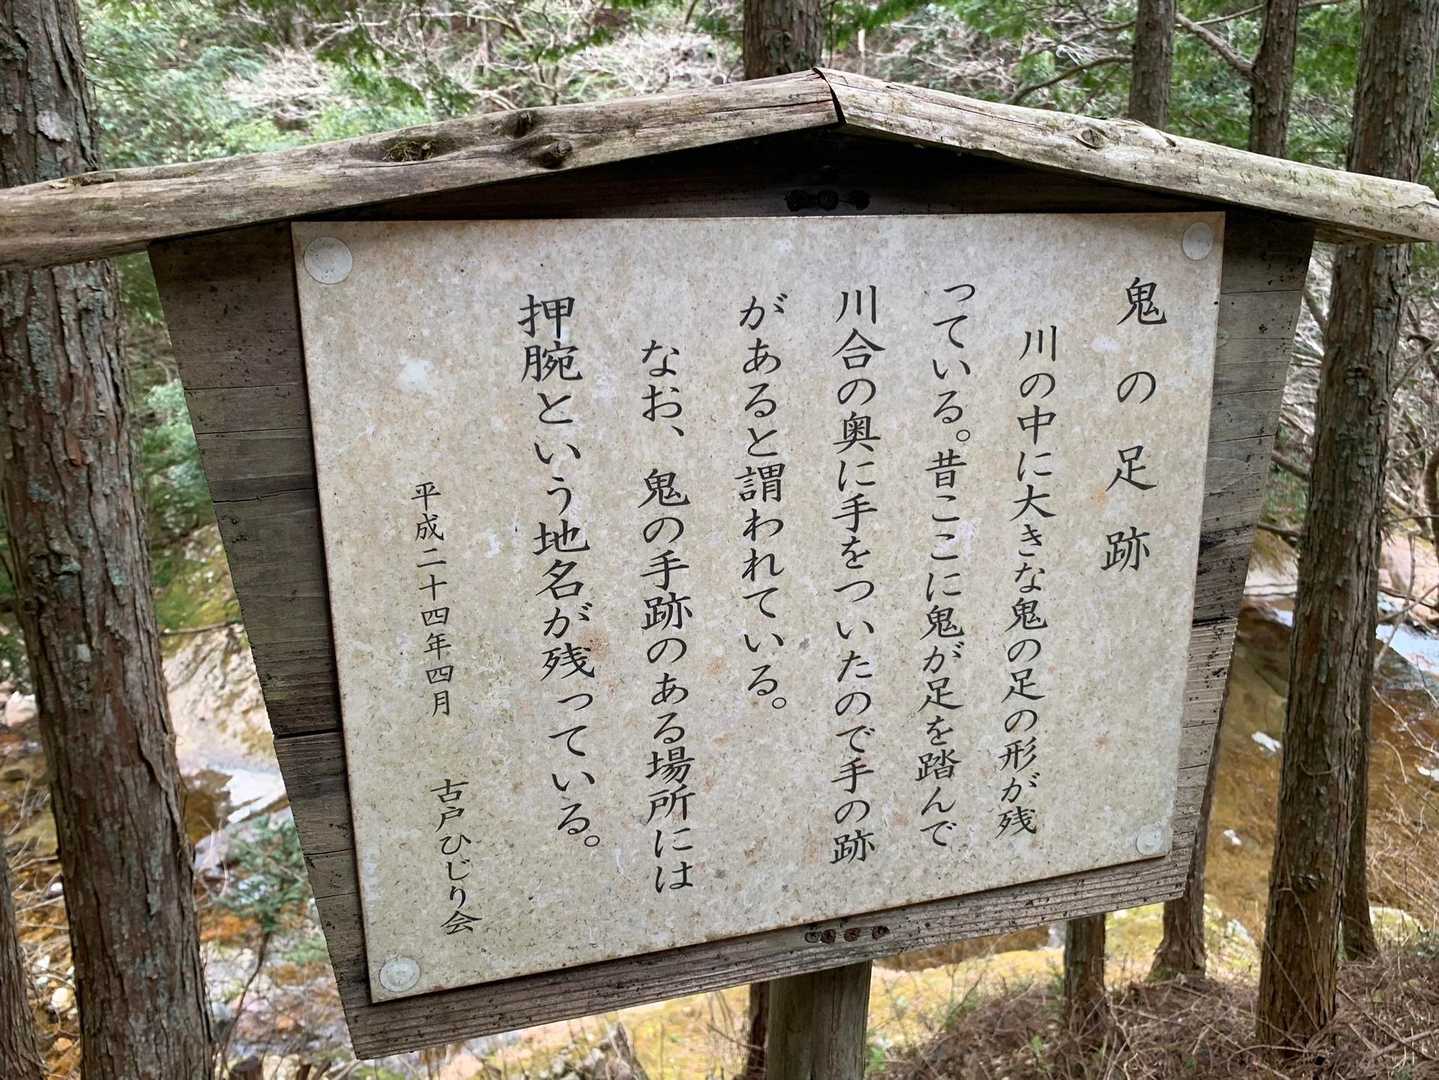 鬼の足跡
川の中に大きな鬼の足の形が残
っている。昔ここに鬼が足を踏んで
川合の奥に手をついたので手の跡
があると謂われている。
なお、鬼の手跡のある場所には
押腕という地名が残っている。
平成二十四年四月 古戸ひじり会